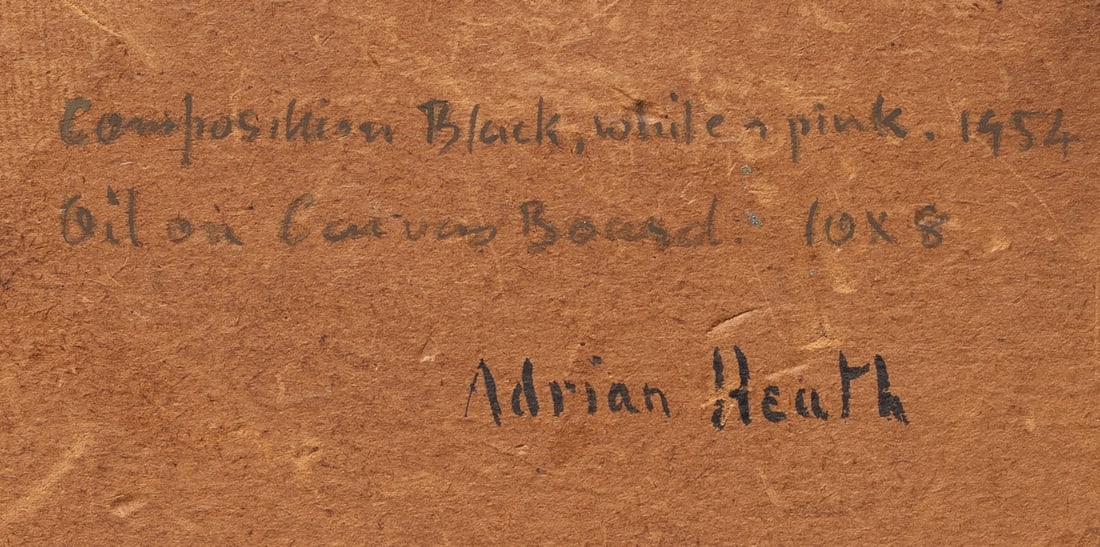 Composition Black, white & pink. 1954
Oil on Canvas Board. 10 x 8
Adrian Heath